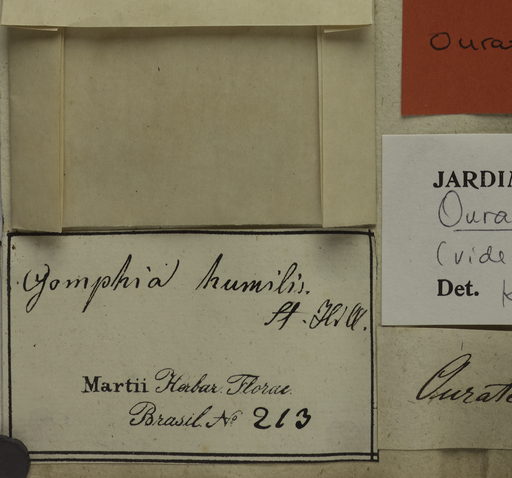 Gomphia humilis.
St. Hill.
Martii Herbar. Florae
Brasil. No 213
Oura
JARDIN
Oura
(vide
Det.
Ourate